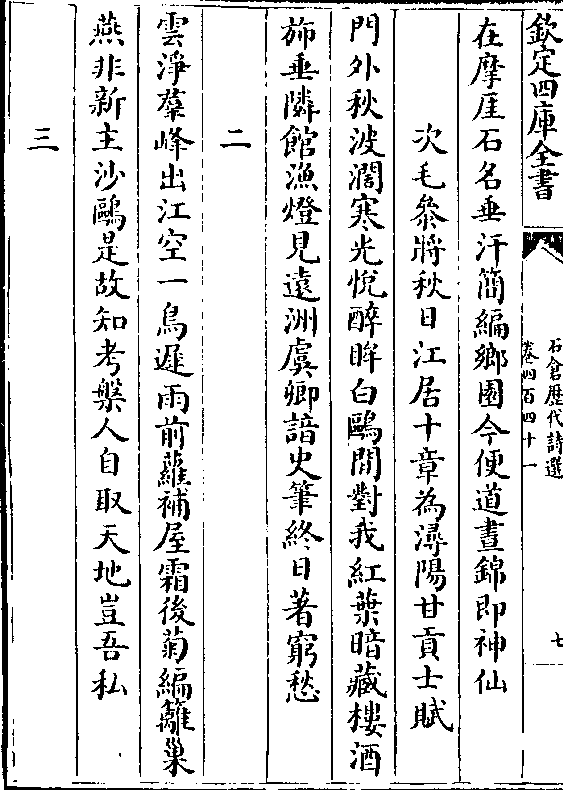 欽定四庫全書
石倉歴代詩選
卷四百四十一
七
在摩厓石名垂汗簡編鄉園今便道晝錦即神仙
次毛叅將秋日江居十章為潯陽甘貢士賦
門外秋波濶寒光悅醉眸白鷗閒對我紅葉暗藏樓酒
斾垂隣館漁燈見遠洲虞卿諳史筆終日著窮愁
二
雲淨羣峰出江空一鳥遲雨前蘿補屋霜後菊編籬巢
燕非新主沙鷗是故知考槃人自取天地豈吾私
三